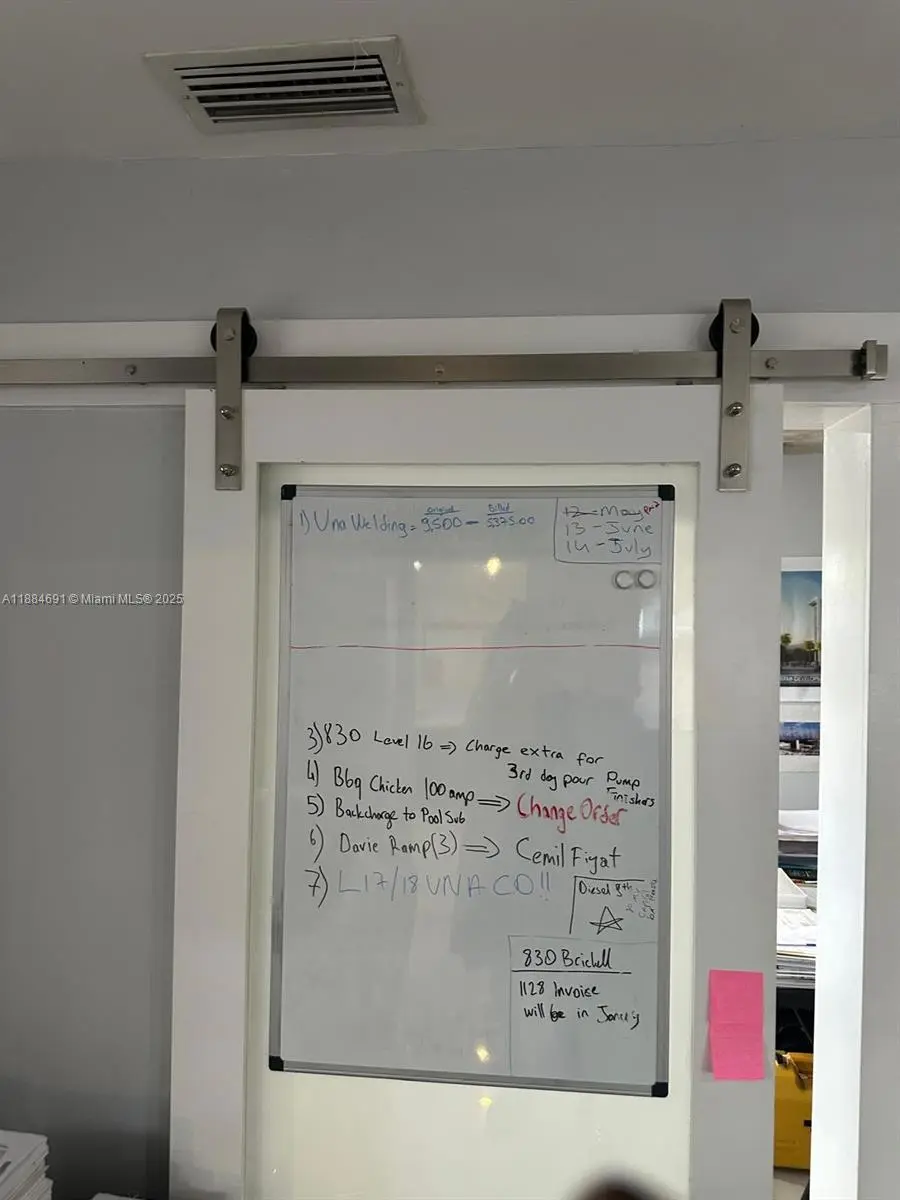 original Billed
1) Una Welding = 9,500 - 5375.00
12 - May
13 - June
14 - July
A11884691 © Miami MLS® 2025
3) 830 Level 16 => Charge extra for
3rd day pour Pump
Finishers
4) Bbq Chicken 100 amp => Change Order
5) Backcharge to Pool Sub
6) Davie Ramp(3) => Cemil Fiyat
7) L17/18 UNA CO!!
Diesel 8th
830 Brickell
1128 Invoice
will be in